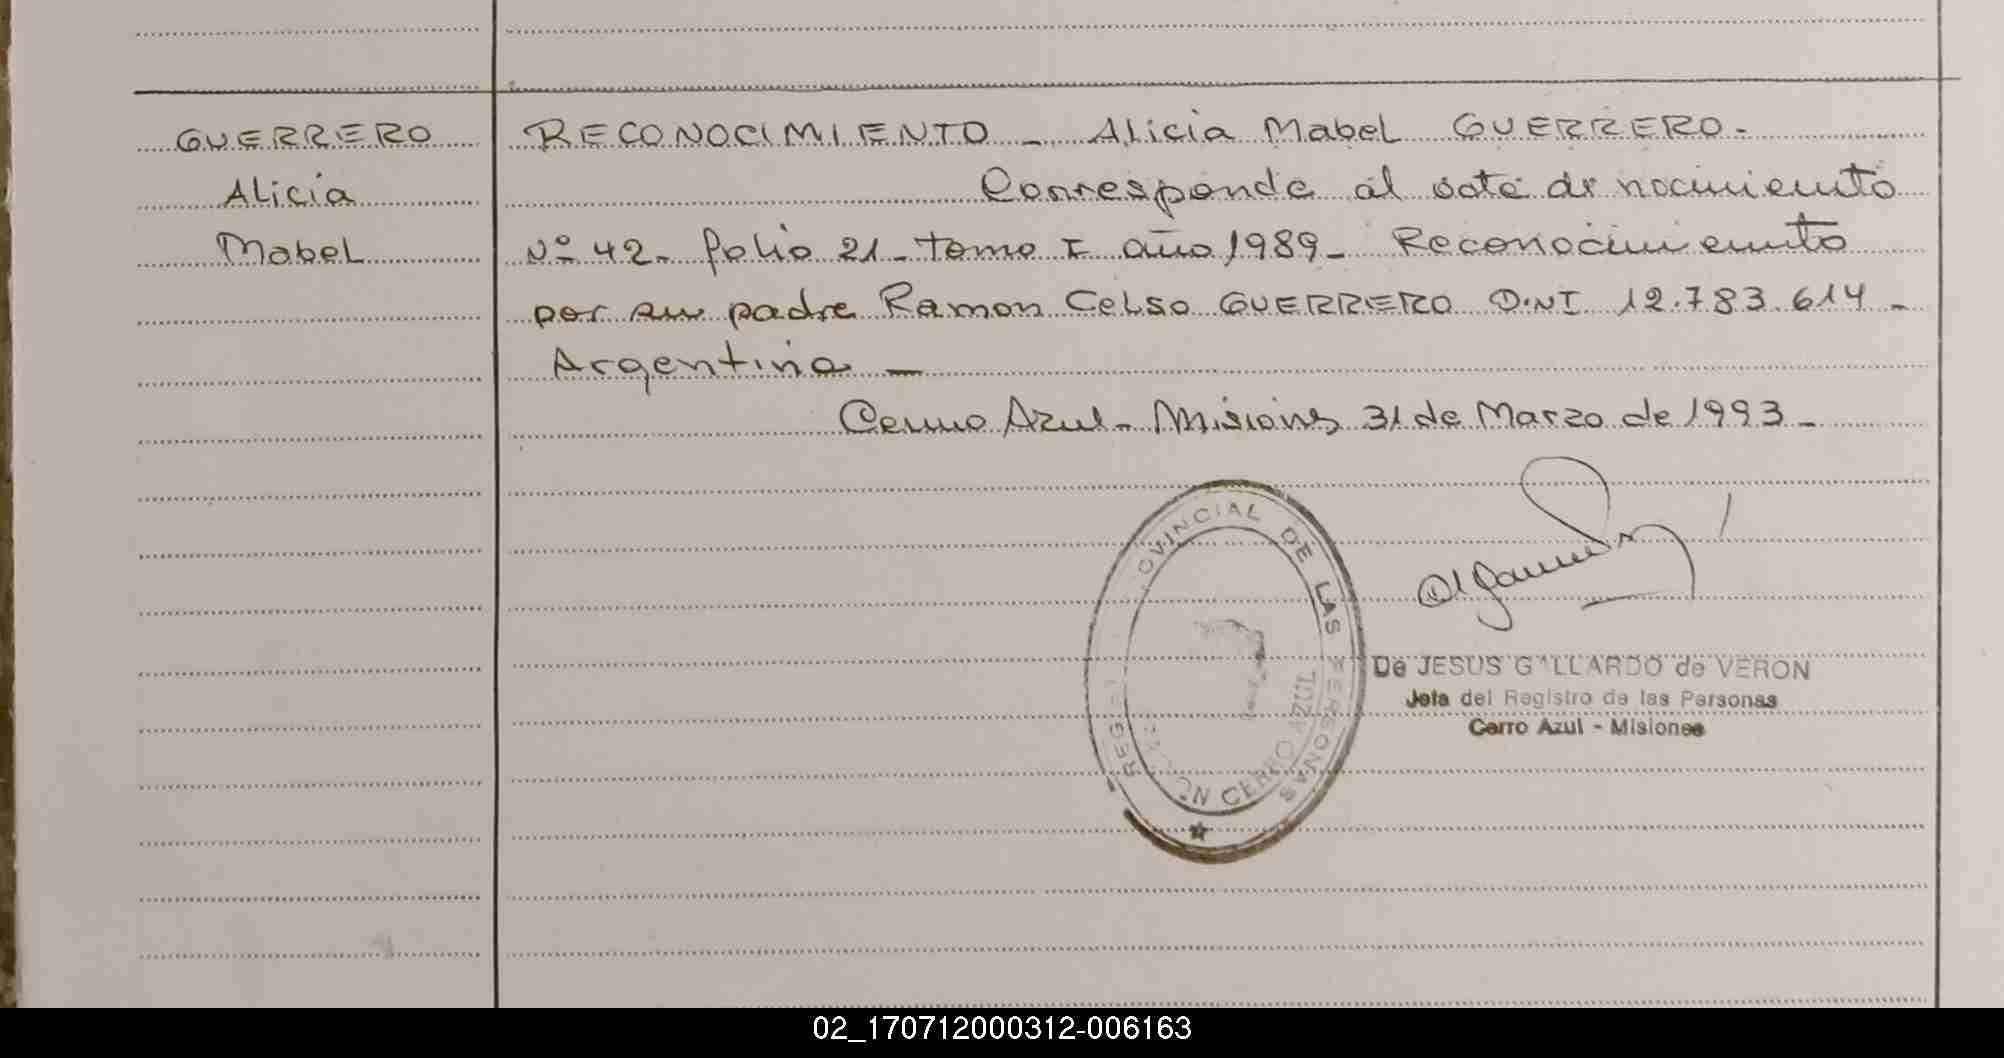 GUERRERO
Alicia
Mabel
RECONOCIMIENTO - Alicia Mabel GUERRERO.-
Corresponde al acta de nacimiento
Nº 42- folio 21- tomo I año 1989- Reconocimiento
por su padre Ramon Celso GUERRERO D.N.I 12.783.614 -
Argentina -
Cerro Azul - Misiones 31 de Marzo de 1993 -
PROVINCIAL DE LAS PERSONAS
CERRO AZUL
De JESUS GALLARDO de VERON
Jefa del Registro de las Personas
Cerro Azul - Misiones
02_170712000312-006163